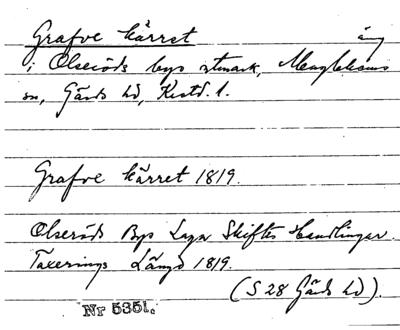 Grafve kärret äng
i Olseröds bys utmark, Maglehems
sn, Gärds hd, Kristd. l.
Grafve kärret 1819.
Olseröds Bys Laga Skiftes Handlingar.
Taxerings Längd 1819.
(S 28 Gärds hd).
Nr 5351.